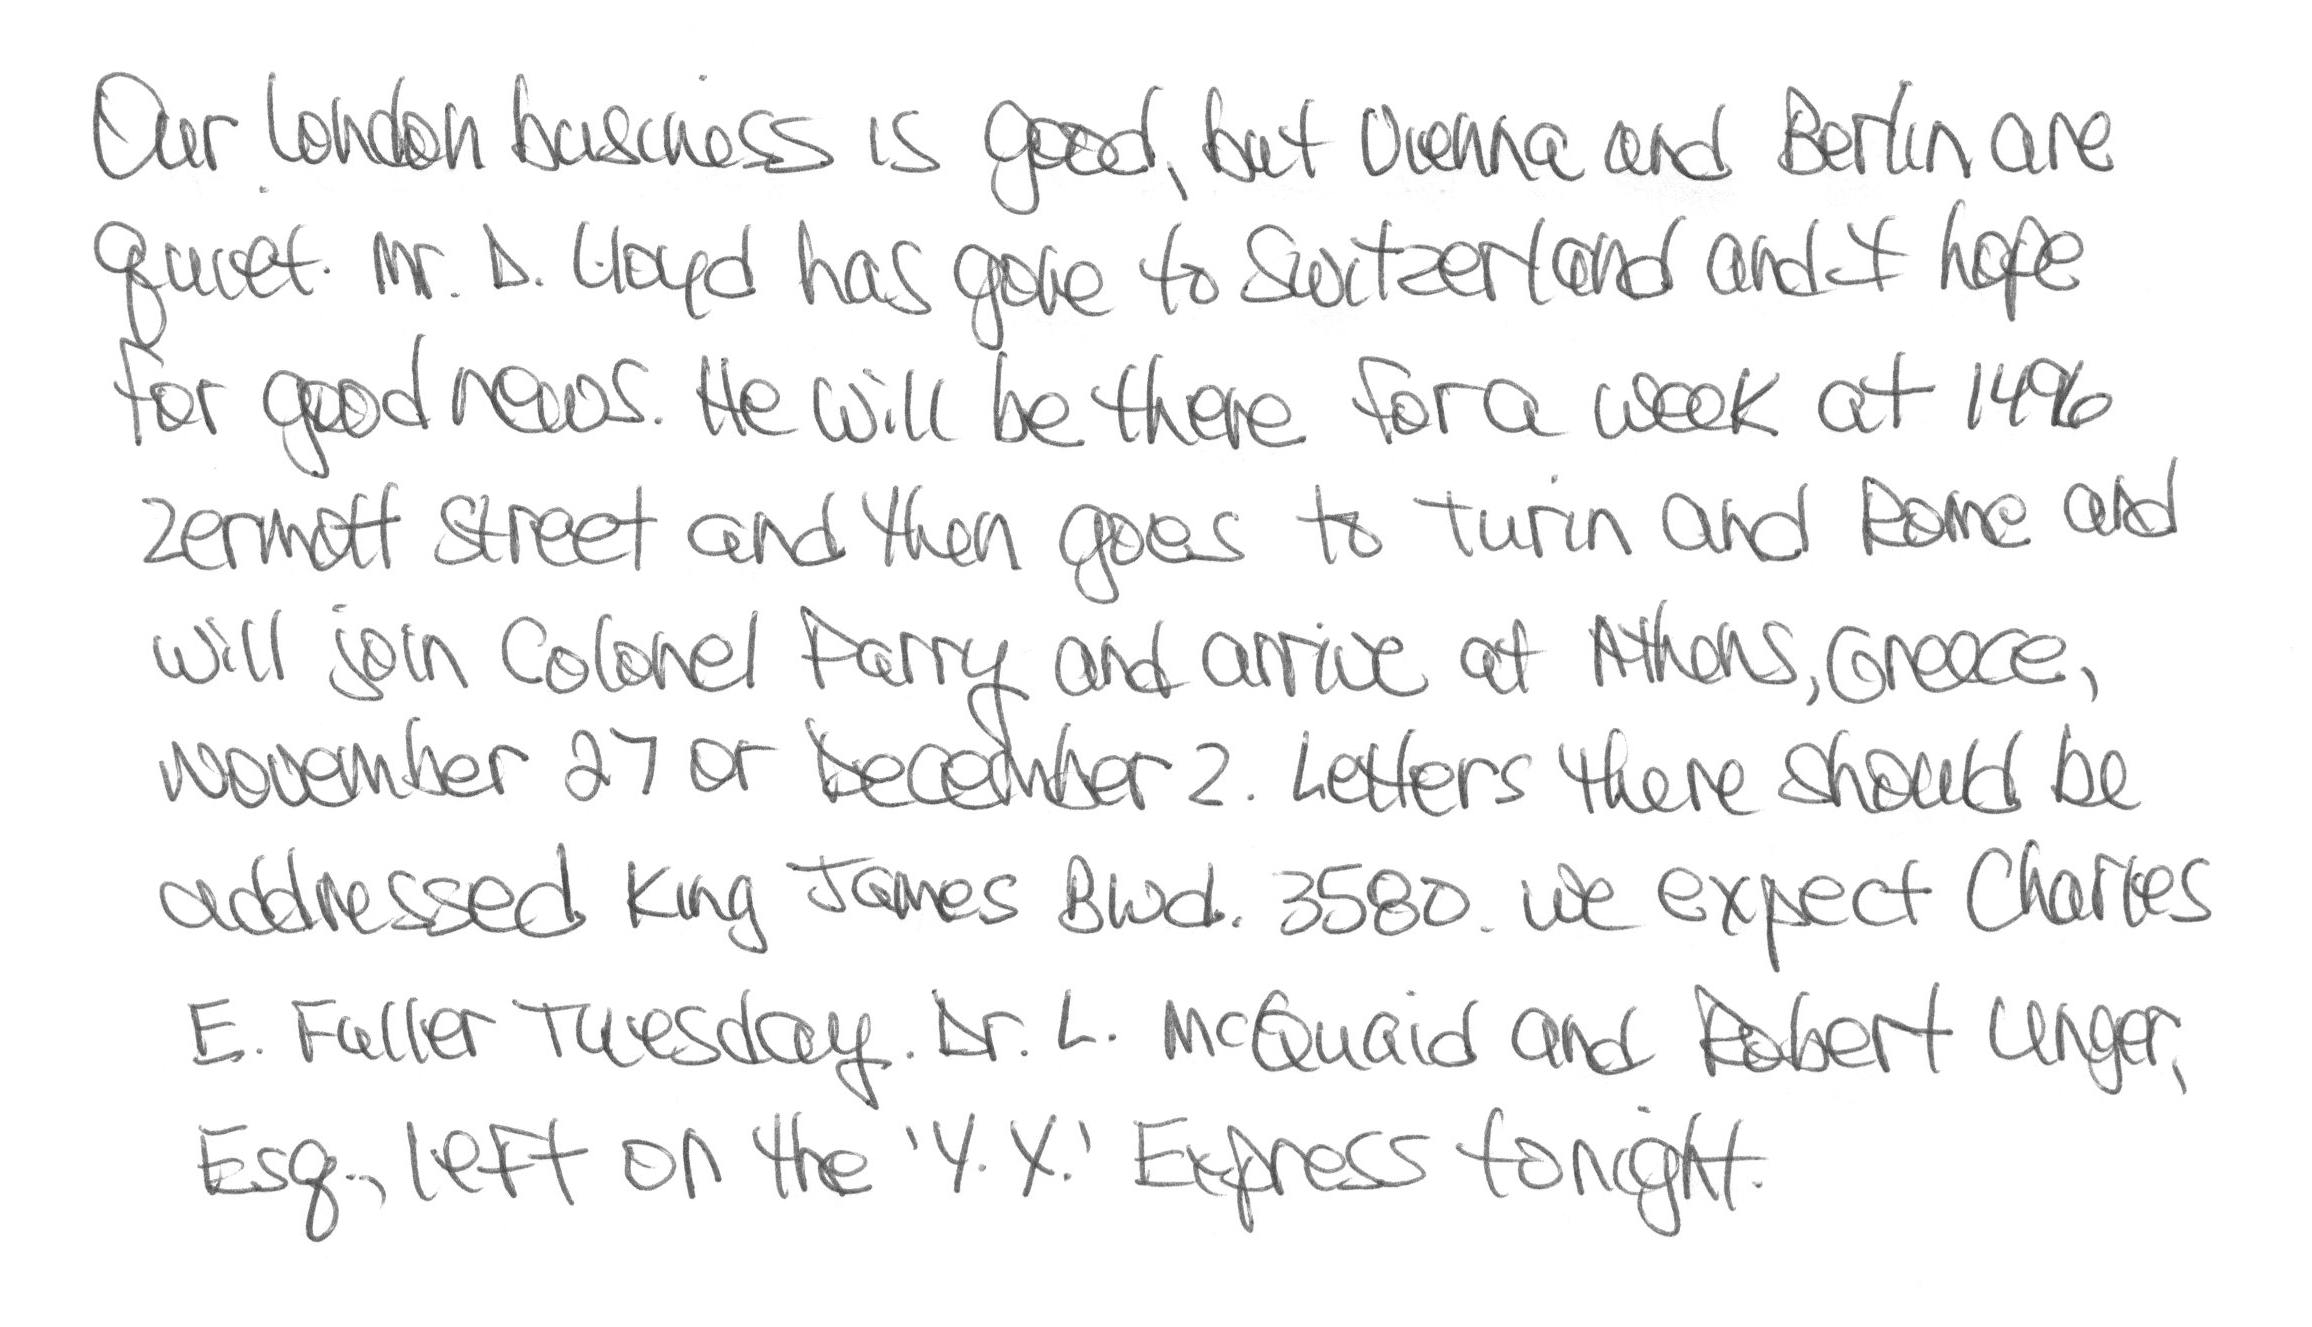 Our London business is good, but Vienna and Berlin are
quiet. Mr. D. Lloyd has gone to Switzerland and I hope
for good news. He will be there for a week at 1496
Zermott Street and then goes to Turin and Rome and
will join Colonel Parry and arrive at Athens, Greece,
November 27 or December 2. Letters there should be
addressed King James Blvd. 3580. We expect Charles
E. Fuller Tuesday. Dr. L. McQuaid and Robert Unger,
Esq., left on the 'Y.X.' Express tonight.